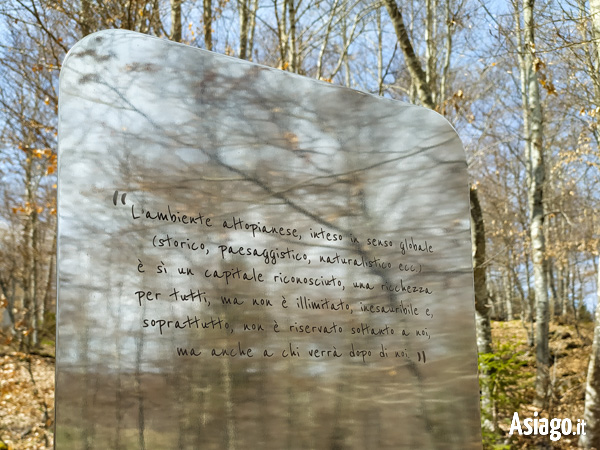 "L'ambiente altopianese, inteso in senso globale
(storico, paesaggistico, naturalistico ecc.)
è sì un capitale riconosciuto, una ricchezza
per tutti, ma non è illimitato, inesauribile e,
soprattutto, non è riservato soltanto a noi,
ma anche a chi verrà dopo di noi."
Asiago.it